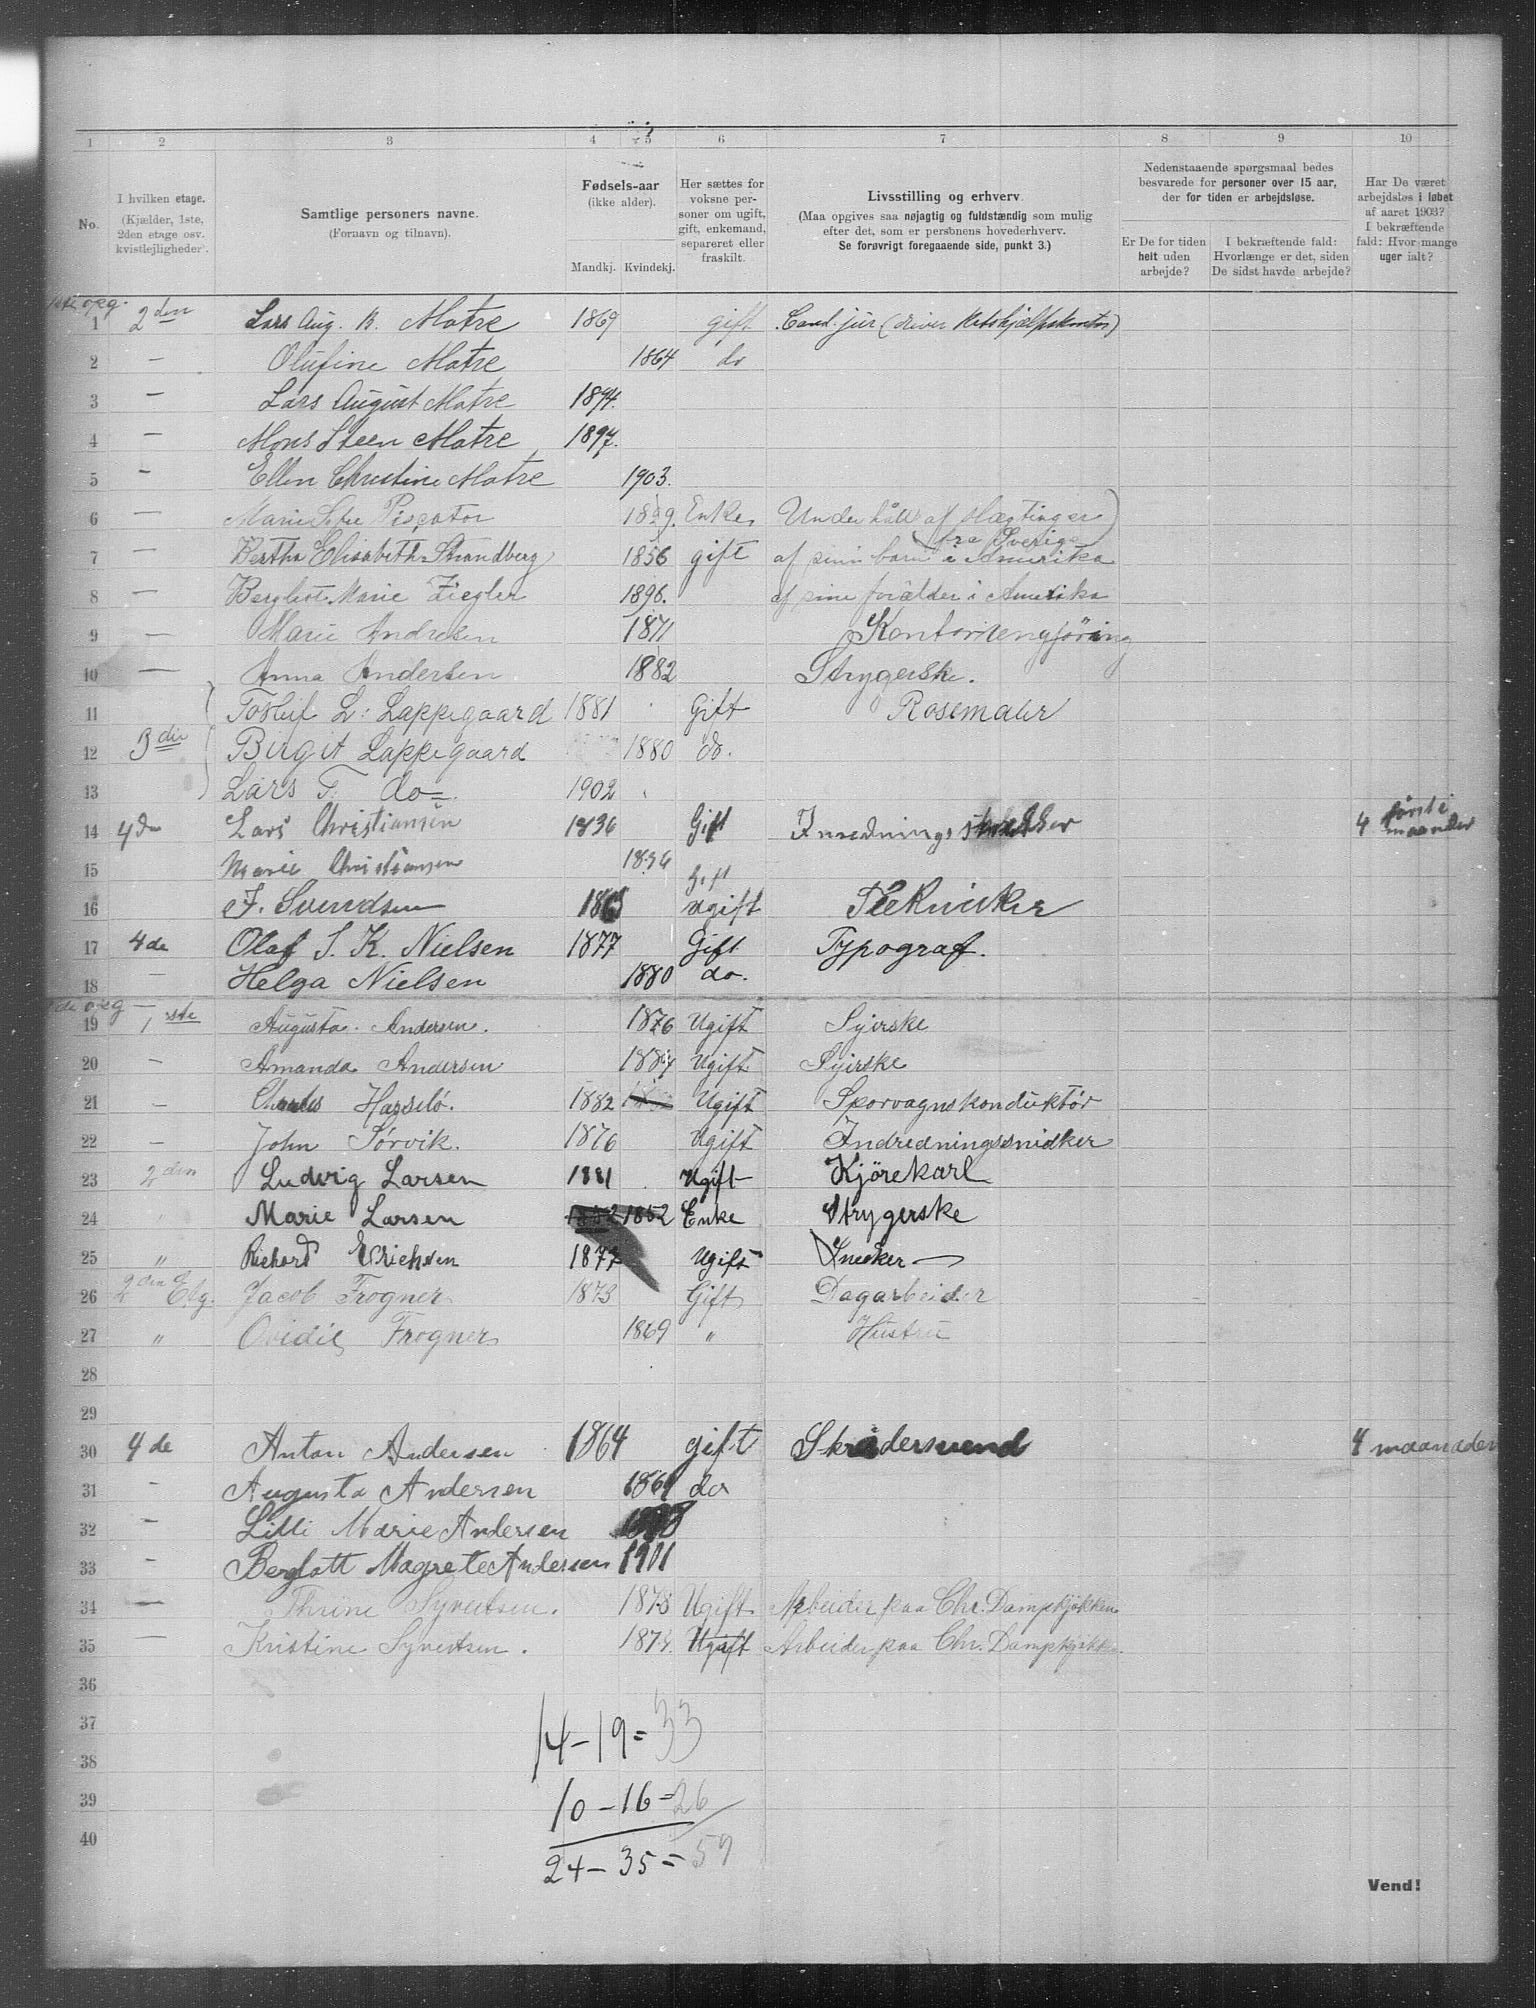 1 2 3 4 5 6 7 8 9 10
No.
I hvilken etage. (Kjælder, 1ste, 2den etage osv. kvistlejligheder).
Samtlige personers navne. (Fornavn og tilnavn).
Fødsels-aar (ikke alder). Mandkj. Kvindekj.
Her sættes for voksne personer om ugift, gift, enkemand, separeret eller fraskilt.
Livsstilling og erhverv. (Maa opgives saa nøjagtig og fuldstændig som mulig efter det, som er personens hovederhverv. Se forøvrigt foregaaende side, punkt 3.)
Nedenstaaende spørgsmaal bedes besvarede for personer over 15 aar, der for tiden er arbejdsløse.
Er De for tiden helt uden arbejde?
I bekræftende fald: Hvorlænge er det, siden De sidst havde arbejde?
Har De været arbejdsløs i løbet af aaret 1903? I bekræftende fald: Hvor mange uger ialt?
1 2den Lars Aug. B. Matre 1869 gift Cand. jur (driver Retshjælpskontor)
2 — Olufine Matre 1864 do
3 — Lars August Matre 1894.
4 — Mons Steen Matre 1897.
5 - Ellen Christine Matre 1903.
6 — Marie Piscator Enke Underhåll af slægtinger
fra Sverige)
7 — Bertha Elisabeth Strandberg 1856 gift af sine barn i Amerika
8 — Bergliot Marie Ziegler 1896. af sine forælder i Amerika
9 — Marie Andresen 1871 Kontorrengjöring
10 — Anna Andersen 1882 Strygerske.
11 L. Lappegaard 1881 Gift Rosemaler
12 3die Birgit Lappegaard 1880 do.
13 Lars T. do 1902
14 4de Lars Christiansen 1836 Gift 4 maander
15 Marie Christiansen 1836 Gift
16 Svendsen Ugift Tekniker
17 4de Olaf S. K. Nielsen 1877 Gift Typograf.
18 — Helga Nielsen 1880 do.
19 1ste Augusta Andersen. 1876 Ugift Syerske
20 — Amanda Andersen 1884 Ugift Syerske
21 — Charles Harselö. 1882 Ugift Sporvagnskonduktör
22 — John Sörvik. 1876 Ugift Indredningssnidker
23 2den Ludvig Larsen 1881 Ugift Kjörekarl
24 Marie Larsen 1852 1852 Enke Strygerske
25 " Richard Erichsen 1877 Ugift Snecker
26 2den Jacob Frogner 1873 Gift Dagarbeider
27 " Ovidie Frogner 1869 " Hustru
28
29
30 4de Anton Andersen 1864 gift Skrädersvend 4 maanader
31 - Augusta Andersen 1861 do
32 - Lilli Marie Andersen
33 - Berglott Magrete Andersen 1901
34 — Thrine Syvertsen. 1878 Ugift Arbeider paa Chr. Dampkjøkken
35 — Kristine Syvertsen. Ugift Arbeider paa Chr. Dampkjøkken.
36
37 14 – 19 = 33
38
39 10 – 16 = 26
40
24 – 35 = 59
Vend!